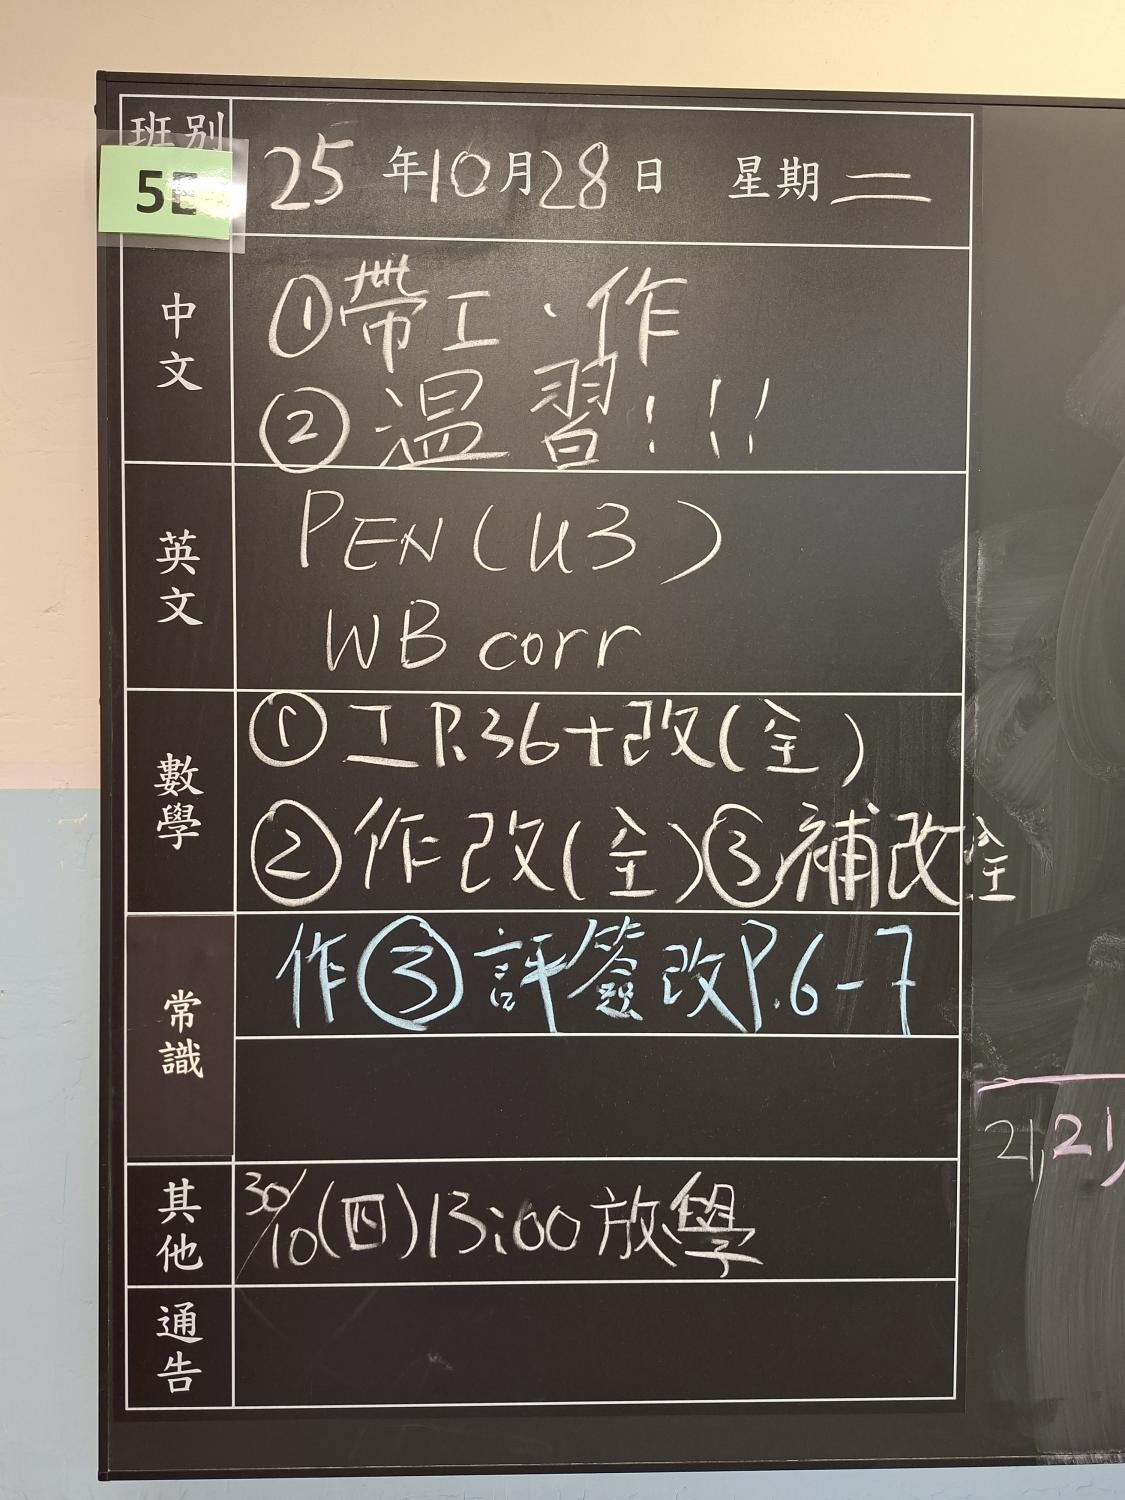 班別
5E
25年10月28日 星期二
中文
①帶工、作
②溫習!!!
英文
PEN(U3)
WB corr
數學
①工P.36+改(全)
②作改(全)③補改全
常識
作③評簽改P.6-7
其他
30/10(四)13:00放學
通告
21,21,